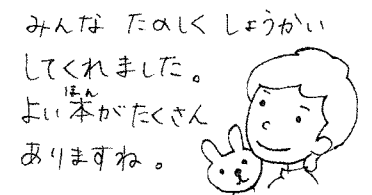 みんな たのしく しょうかい
してくれました。
よい本がたくさん
ほん
ありますね。